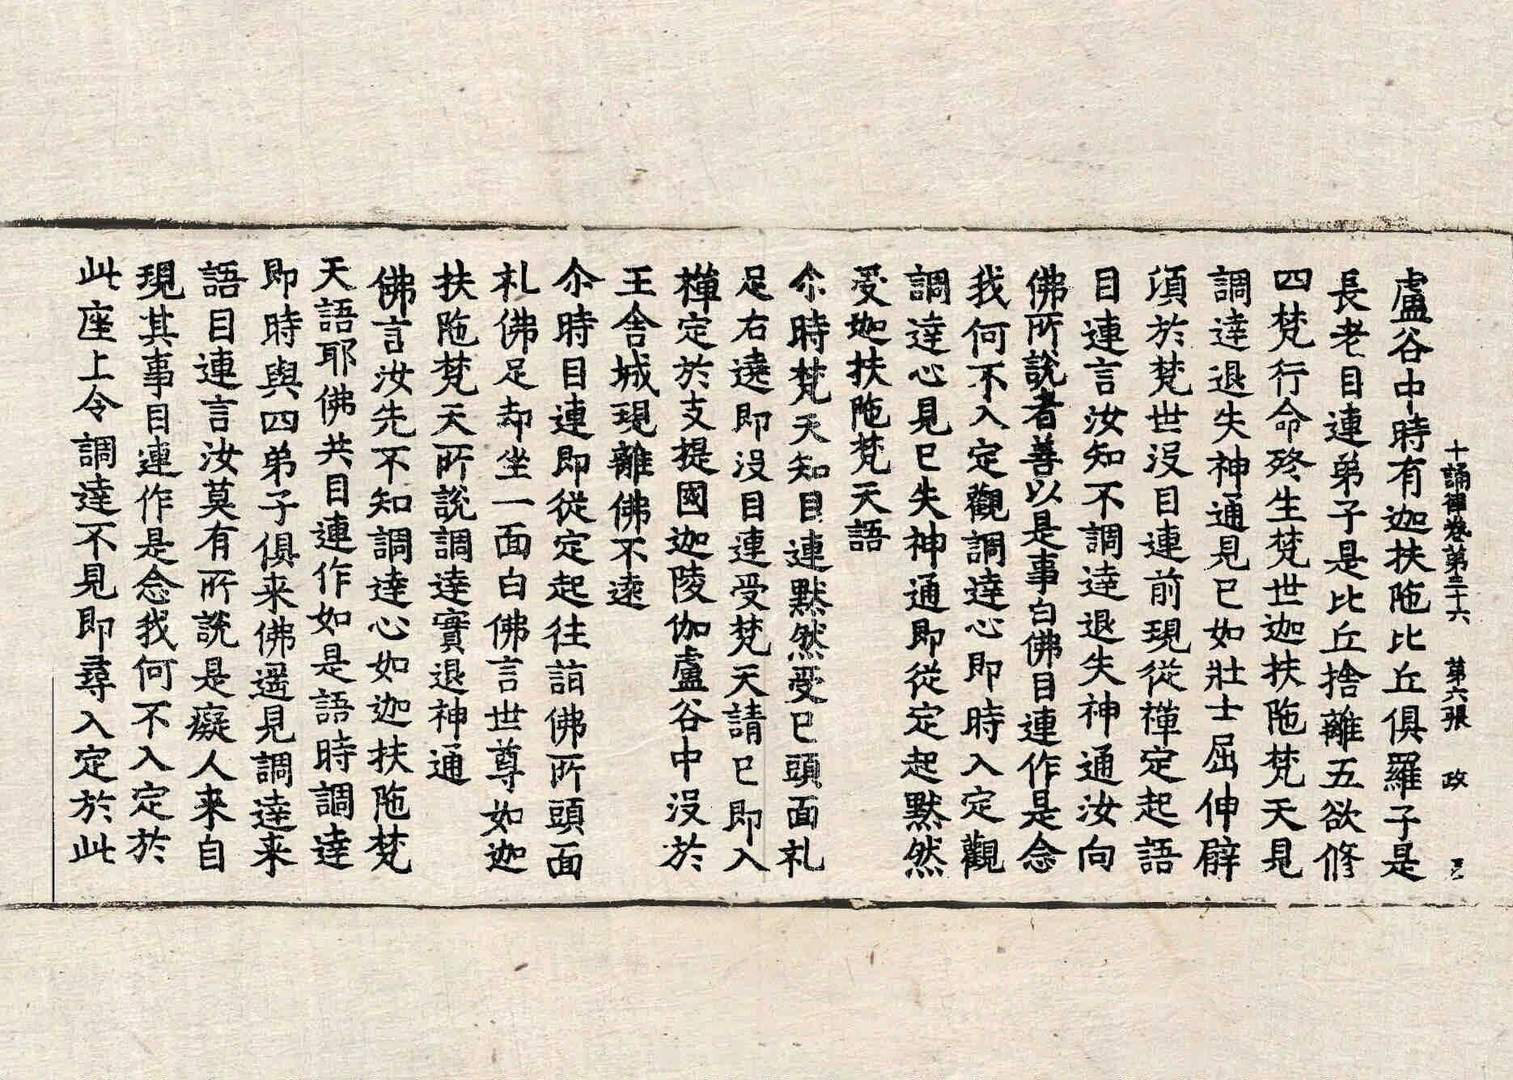 十誦律卷第三十六 第六張 政
盧谷中時有迦扶陁比丘俱羅子是
長老目連弟子是比丘捨離五欲修
四梵行命終生梵世迦扶陁梵天見
調達退失神通見已如壯士屈伸臂
須於梵世沒目連前現從禪定起語
目連言汝知不調達退失神通汝向
佛所說者善以是事白佛目連作是念
我何不入定觀調達心即時入定觀
調達心見已失神通即從定起默然
受迦扶陁梵天語
尒時梵天知目連默然受已頭面礼
足右遶即沒目連受梵天請已即入
禪定於支提國迦陵伽盧谷中沒於
王舍城現離佛不遠
尒時目連即從定起往詣佛所頭面
礼佛足却坐一面白佛言世尊如迦
扶陁梵天所說調達實退神通
佛言汝先不知調達心如迦扶陁梵
天語耶佛共目連作如是語時調達
即時與四弟子俱来佛遥見調達来
語目連言汝莫有所說是癡人来自
現其事目連作是念我何不入定於
此座上令調達不見即尋入定於此